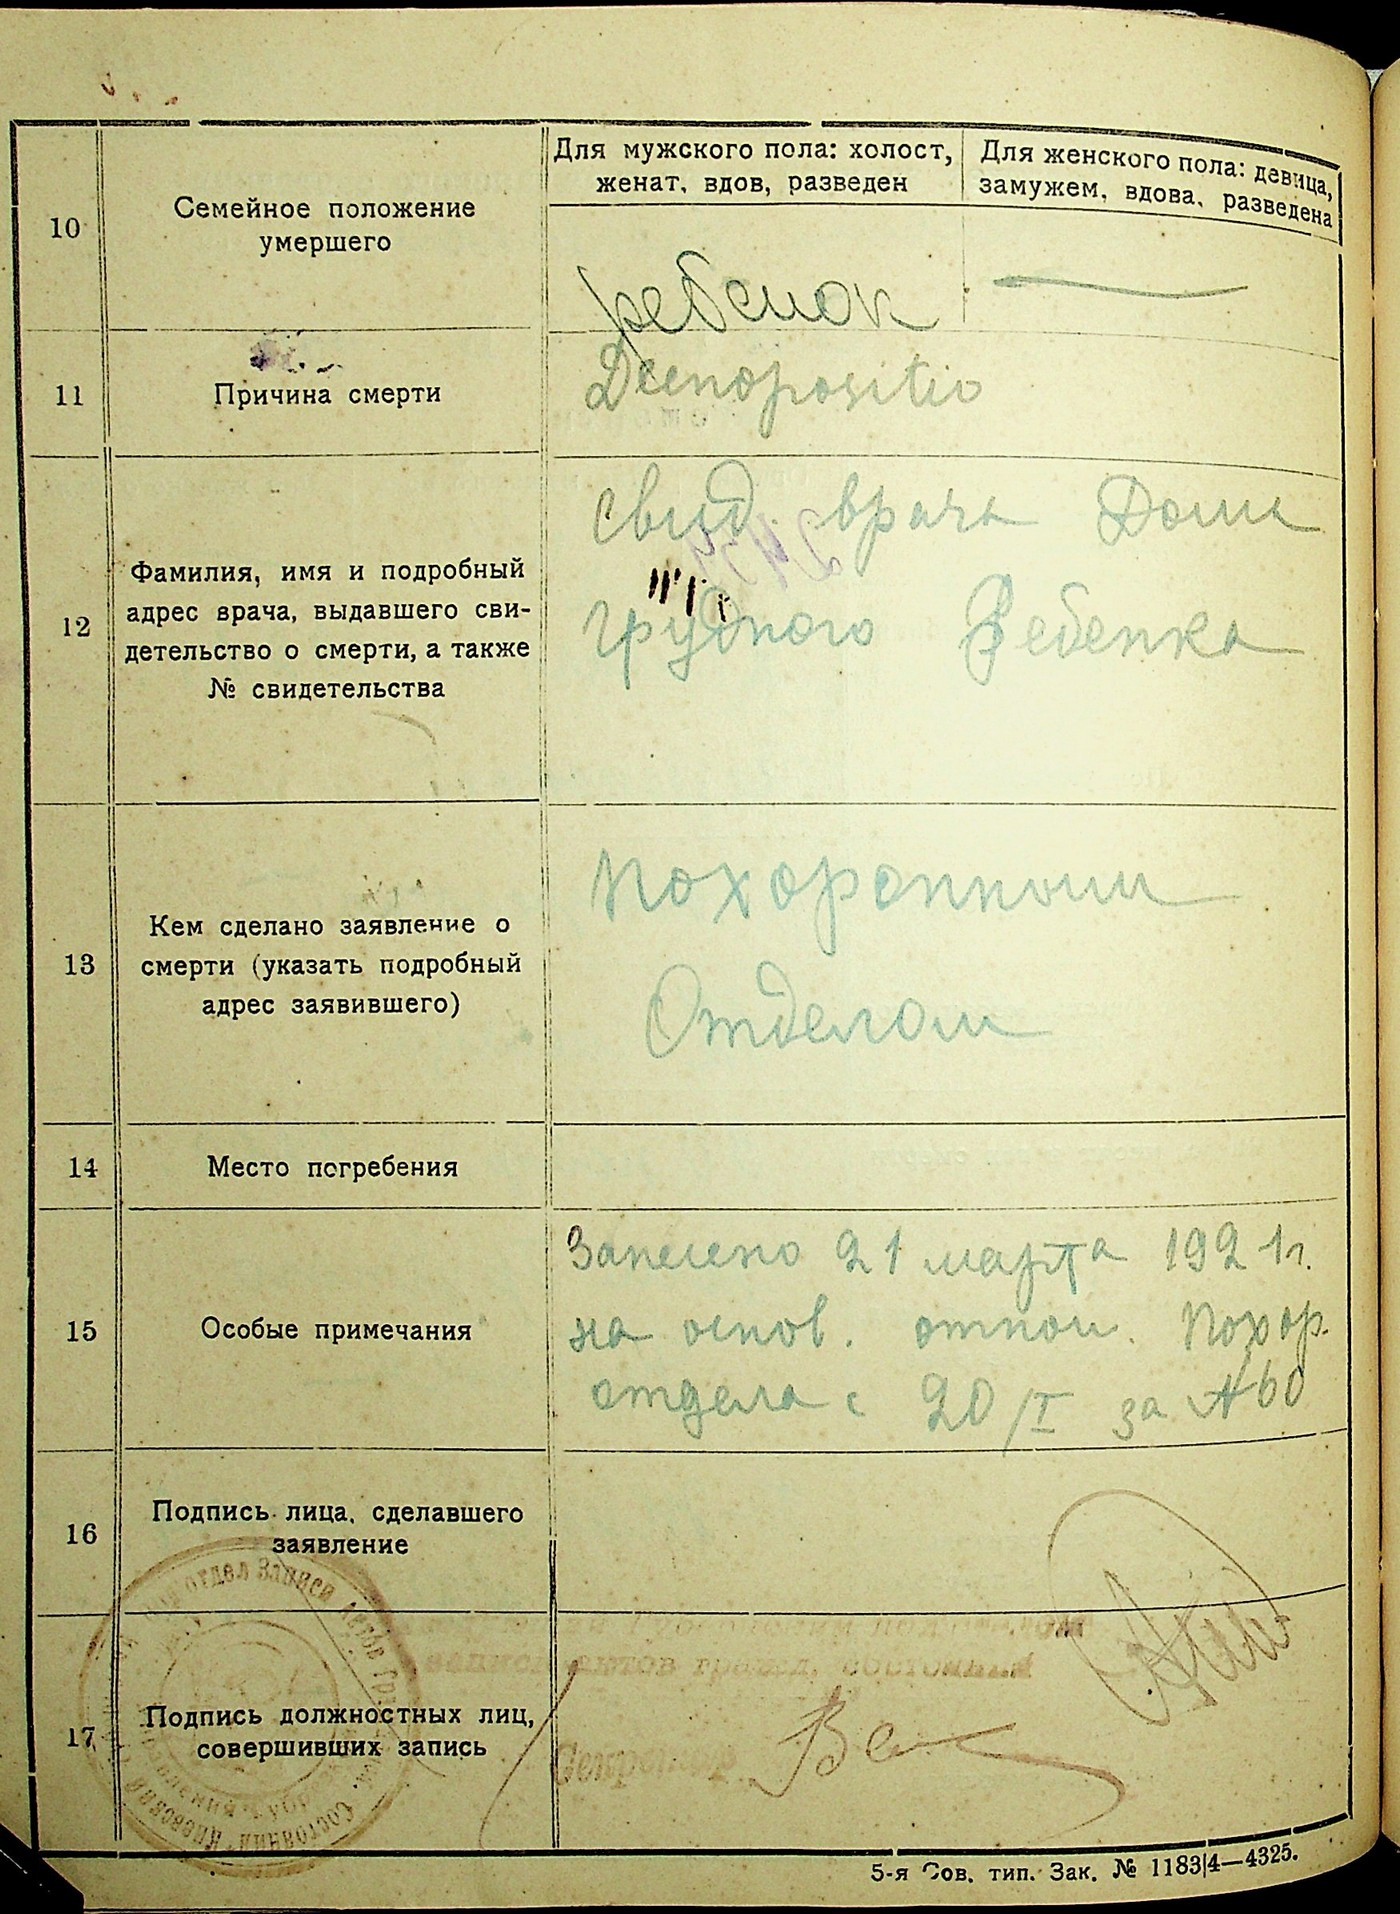 Для мужского пола: холост,
женат, вдов, разведен
Для женского пола: девица,
замужем, вдова, разведена
10
Семейное положение
умершего
ребенок
11
Причина смерти
12
Фамилия, имя и подробный
адрес врача, выдавшего сви-
детельство о смерти, а также
№ свидетельства
Свид. врача Дома
грудного Ребенка
13
Кем сделано заявление о
смерти (указать подробный
адрес заявившего)
Похоронным
Отделом
14
Место погребения
15
Особые примечания
Занесено 21 марта 1921г.
на основ. отнош. Похор.
отдела с 20/I за № 60
16
Подпись лица, сделавшего
заявление
17
Подпись должностных лиц,
совершивших запись
записи актов гражд. состояния
Секретарь
отдел Записи Актов
Состояний Киевский
5-я Сов. тип. Зак. № 1183|4—4325.